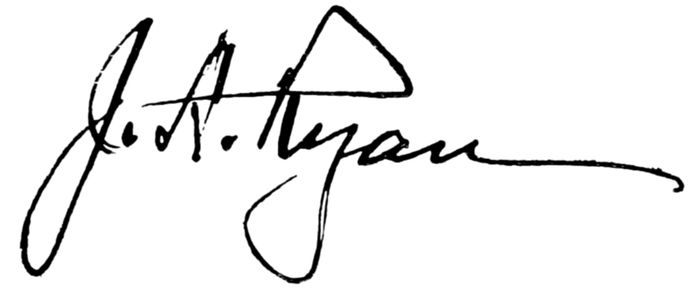 J. A. Ryan